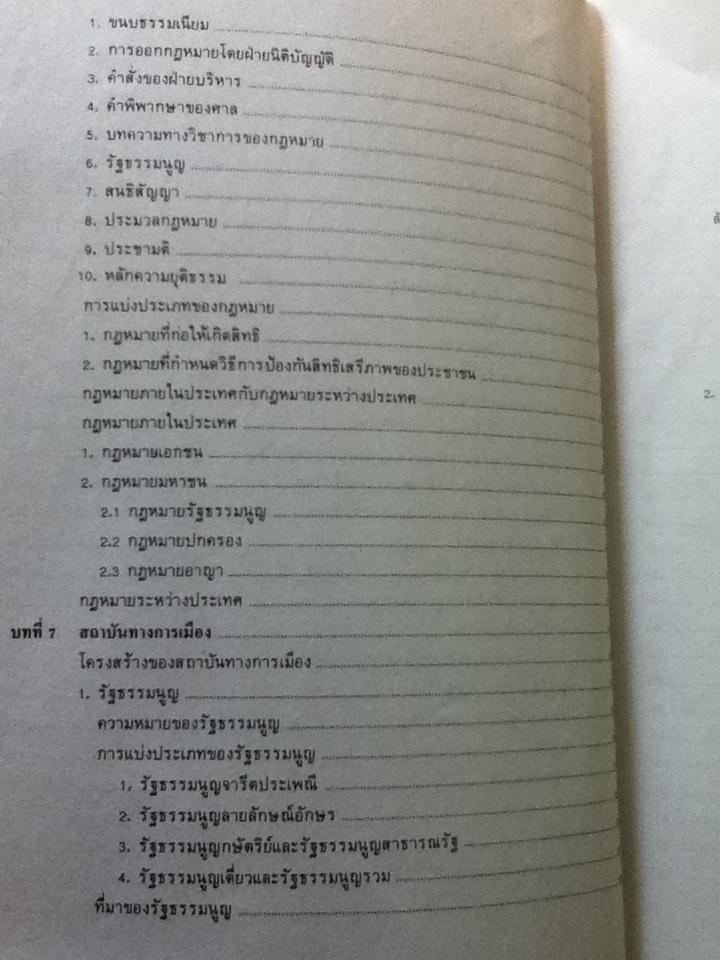 1. ขนบธรรมเนียม
2. การออกกฎหมายโดยฝ่ายนิติบัญญัติ
3. คำสั่งของฝ่ายบริหาร
4. คำพิพากษาของศาล
5. บทความทางวิชาการของกฎหมาย
6. รัฐธรรมนูญ
7. สนธิสัญญา
8. ประมวลกฎหมาย
9. ประชามติ
10. หลักความยุติธรรม
การแบ่งประเภทของกฎหมาย
1. กฎหมายที่ก่อให้เกิดสิทธิ
2. กฎหมายที่กำหนดวิธีการป้องกันสิทธิเสรีภาพของประชาชน
กฎหมายภายในประเทศกับกฎหมายระหว่างประเทศ
กฎหมายภายในประเทศ
1. กฎหมายเอกชน
2. กฎหมายมหาชน
2.1 กฎหมายรัฐธรรมนูญ
2.2 กฎหมายปกครอง
2.3 กฎหมายอาญา
กฎหมายระหว่างประเทศ
บทที่ 7 สถาบันทางการเมือง
โครงสร้างของสถาบันทางการเมือง
1. รัฐธรรมนูญ
ความหมายของรัฐธรรมนูญ
การแบ่งประเภทของรัฐธรรมนูญ
1. รัฐธรรมนูญจารีตประเพณี
2. รัฐธรรมนูญลายลักษณ์อักษร
3. รัฐธรรมนูญกษัตริย์และรัฐธรรมนูญสาธารณรัฐ
4. รัฐธรรมนูญเดี่ยวและรัฐธรรมนูญรวม
ที่มาของรัฐธรรมนูญ
2.